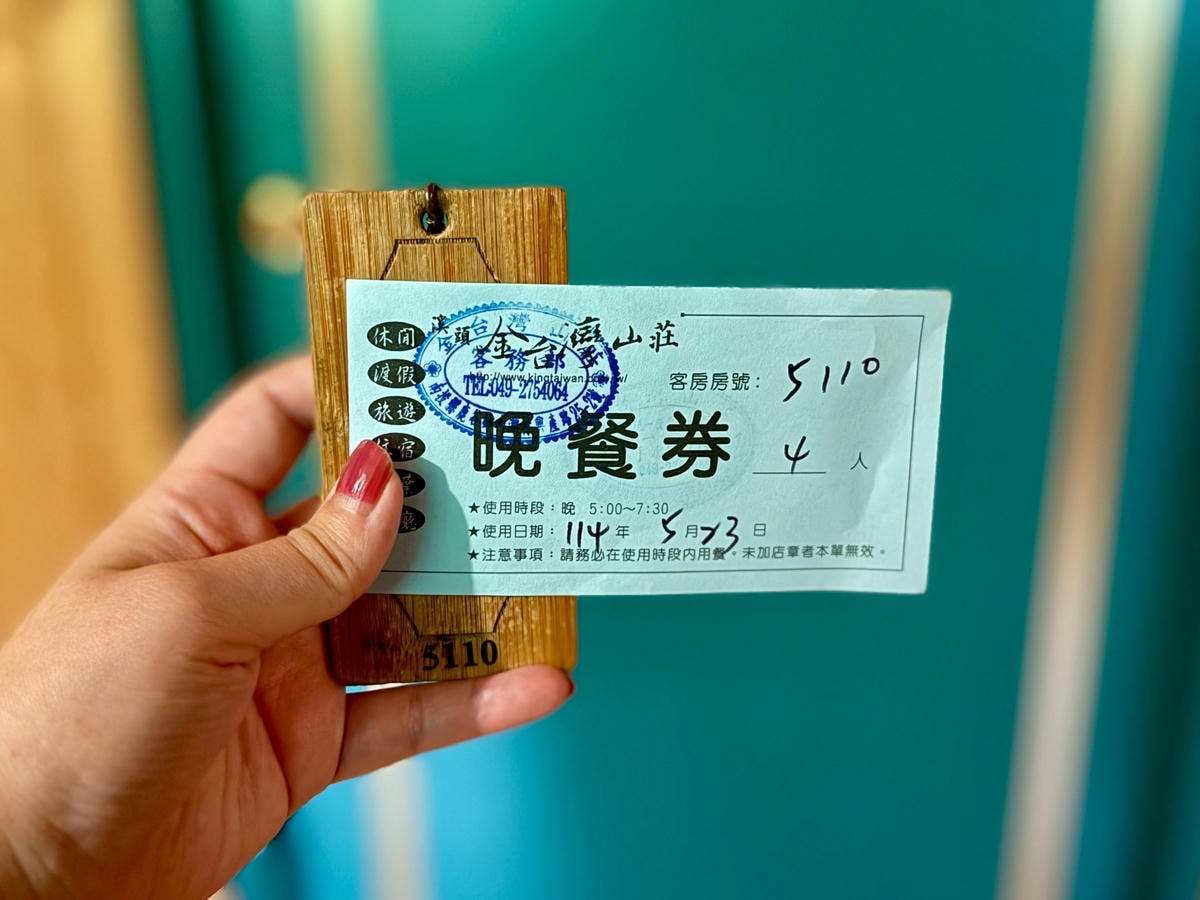 溪頭 金台灣山莊
客務部
http://www.kingtaiwan.com.tw/
TEL:049-2754064
休閒
渡假
旅遊
住宿
客房房號: 5110
晚餐券 4 人
★使用時段:晚 5:00~7:30
★使用日期:114年 5月23日
★注意事項:請務必在使用時段內用餐。未加店章者本單無效。
5110